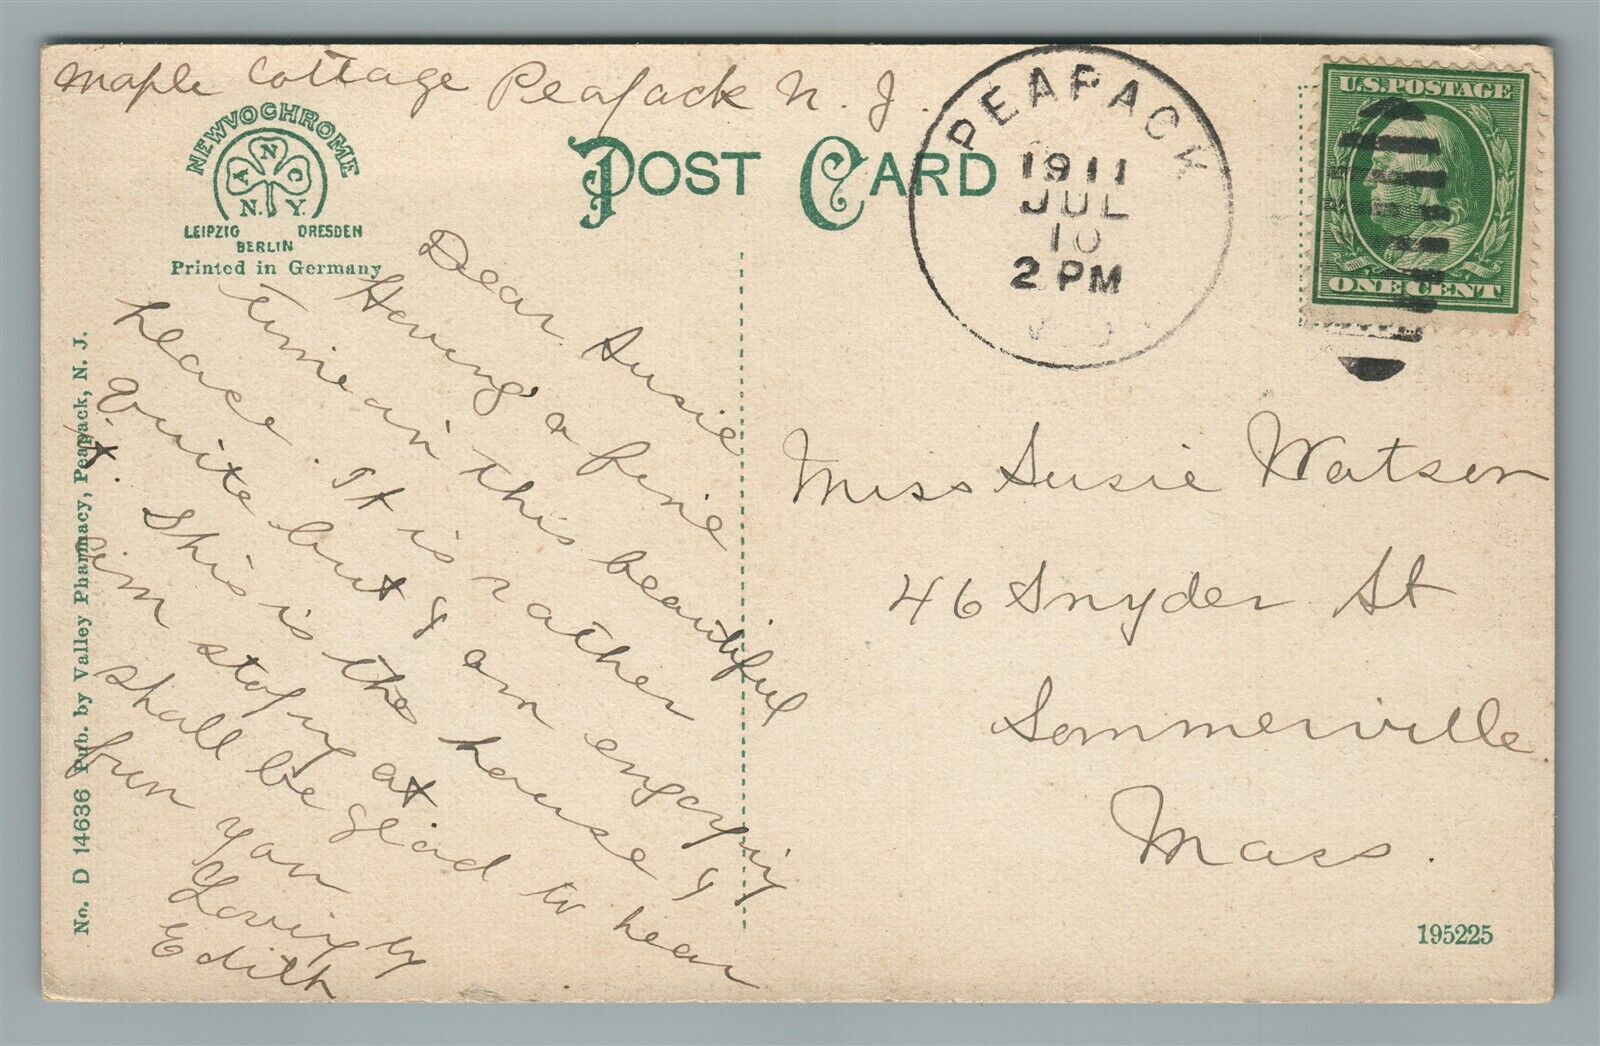 Maple Cottage Peapack N. J.
NEWVOCHROME
A N C
N. Y.
LEIPZIG DRESDEN
BERLIN
Printed in Germany
POST CARD
PEAPACK
1911
JUL
10
2 PM
U.S. POSTAGE
ONE CENT
Dear Susie
Having a fine
time in this beautiful
place. It is rather
quite but I am enjoying
it. This is the house I
am stoping at
shall be glad to hear
from you
Lovingly
Edith
Miss Susie Watson
46 Snyder St
Sommerville
Mass.
No. D 14636 Pub. by Valley Pharmacy, Peapack, N. J.
195225